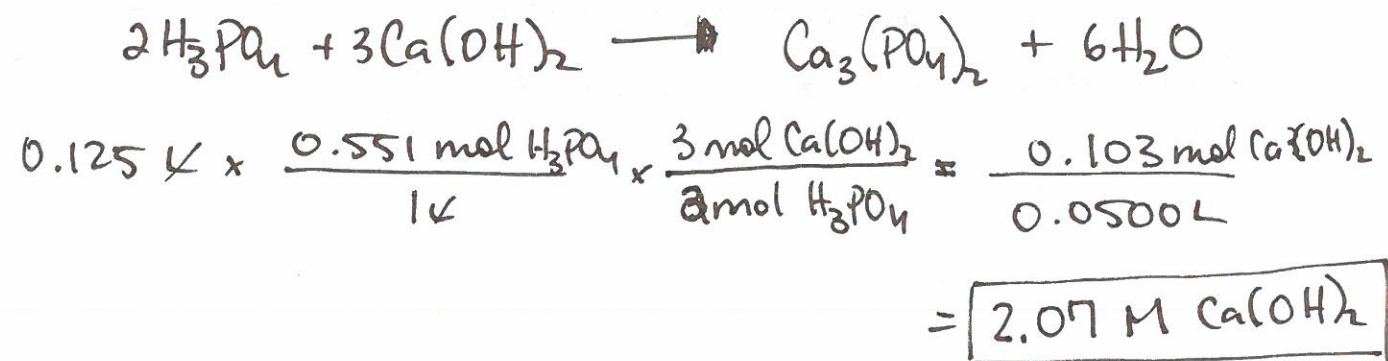 2H₃PO₄ + 3Ca(OH)₂ → Ca₃(PO₄)₂ + 6H₂O
0.125 L × 0.551 mol H₃PO₄ / 1L × 3 mol Ca(OH)₂ / 2 mol H₃PO₄ = 0.103 mol Ca(OH)₂ / 0.0500L
= 2.07 M Ca(OH)₂